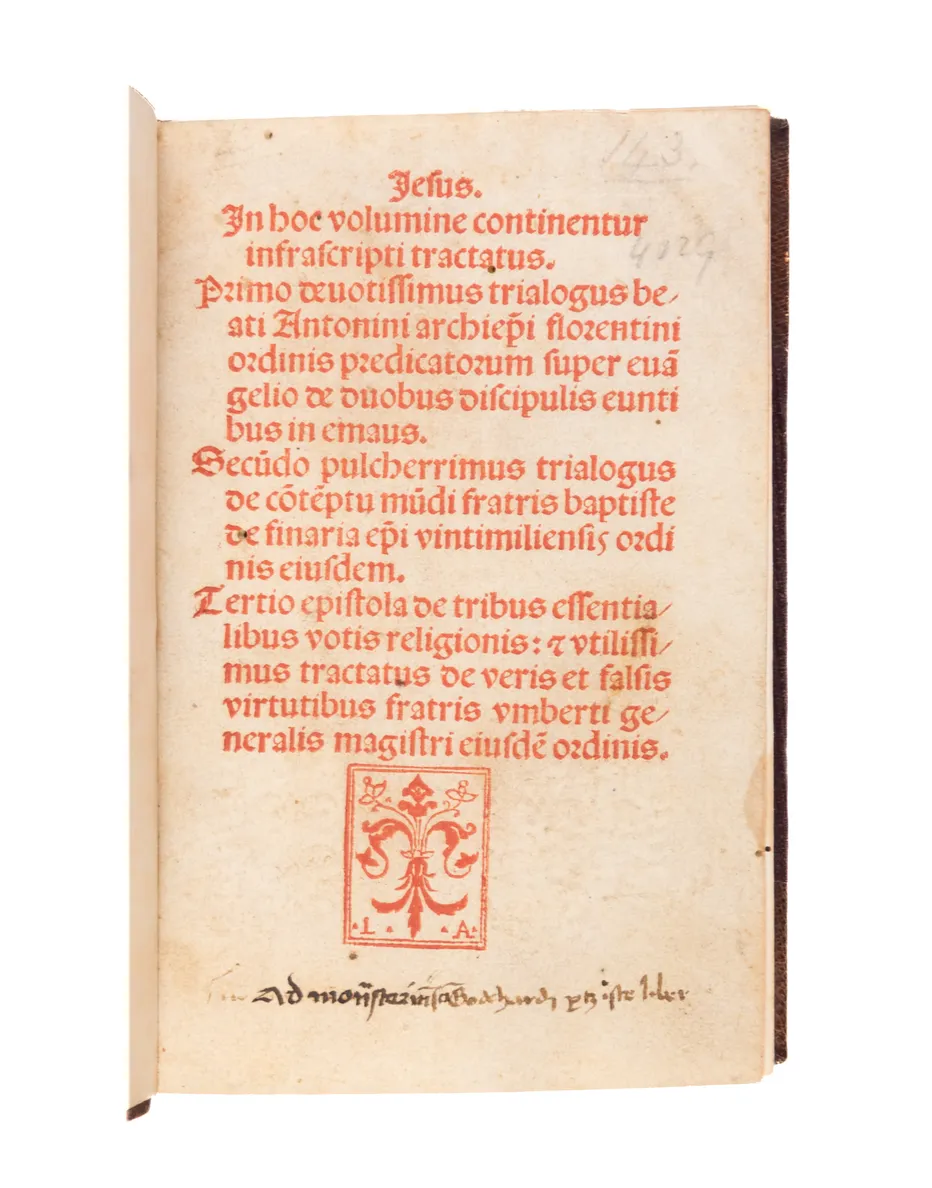 143.
Jesus.
In hoc volumine continentur
4029
infrascripti tractatus.
Primo deuotissimus trialogus be/
ati Antonini archiep̃i florentini
ordinis predicatorum super euã
gelio de duobus discipulis eunti
bus in emaus.
Secũdo pulcherrimus trialogus
de cõtẽptu mũdi fratris baptiste
de finaria ep̃i vintimiliensis ordi
nis eiusdem.
Tertio epistola de tribus essentia/
libus votis religionis: ⁊ vtilissi/
mus tractatus de veris et falsis
virtutibus fratris vmberti ge/
neralis magistri eiusdẽ ordinis.
L A
Ad iste liber